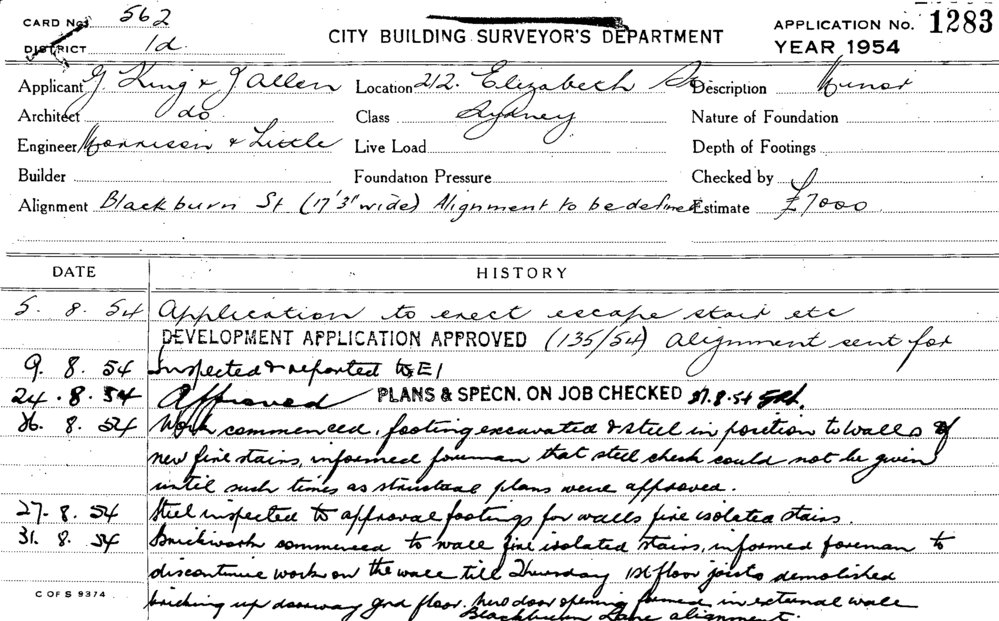 CARD No. 562
DISTRICT 1d.
CITY BUILDING SURVEYOR'S DEPARTMENT
APPLICATION No. 1283
YEAR 1954
Applicant G. King & J Allen Location 212. Elizabeth St Description Minor
Architect do Class Sydney Nature of Foundation
Engineer Morrison & Little Live Load Depth of Footings
Builder Foundation Pressure Checked by
Alignment Blackburn St (17'3" wide) Alignment to be defined Estimate £7000
DATE HISTORY
5. 8. 54 Application to erect escape stair etc
DEVELOPMENT APPLICATION APPROVED (135/54) alignment sent for
9. 8. 54 Inspected & reported to E1
24. 8. 54 Approved PLANS & SPECN. ON JOB CHECKED 27.8.54
26. 8. 54 Work commenced, footing excavated & steel in position to walls of
new fire stairs, informed foreman that steel check could not be given
until such times as structural plans were approved.
27. 8. 54 Steel inspected to approval footings for walls fire isolated stairs.
31. 8. 54 Brickwork commenced to wall fire isolated stairs, informed foreman to
discontinue work on the wall till Thursday 1st floor joists demolished
bricking up doorway grd floor. New door opening formed in external wall
Blackburn Lane alignment.
C OF S 9374